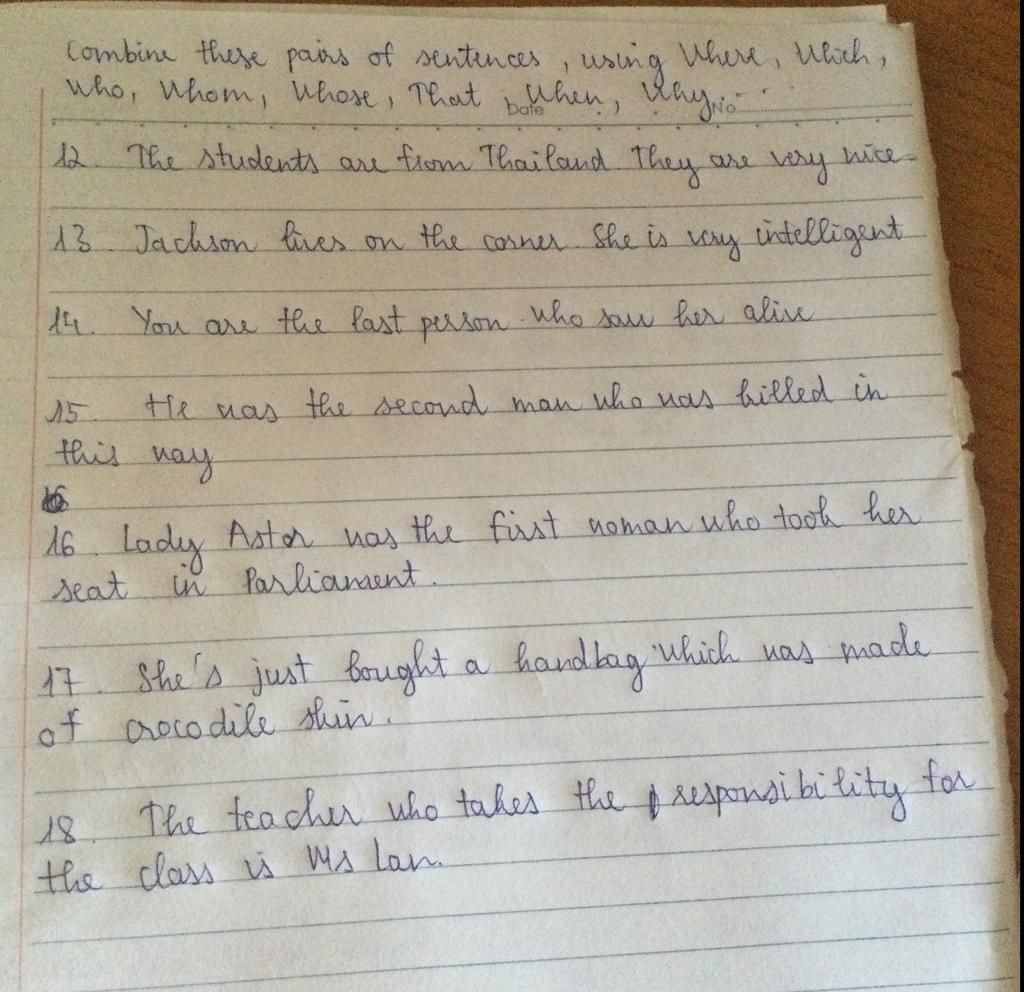 Combine these pairs of sentences, using Where, Which,
Who, Whom, Whose, That, When, Why...
Date No
12. The students are from Thailand. They are very nice.
13. Jackson lives on the corner. She is very intelligent
14. You are the last person who saw her alive
15. He was the second man who was killed in
this way
16. Lady Astor was the first woman who took her
seat in Parliament.
17. She's just bought a handbag which was made
of crocodile skin.
18. The teacher who takes the responsibility for
the class is Ms Lan.